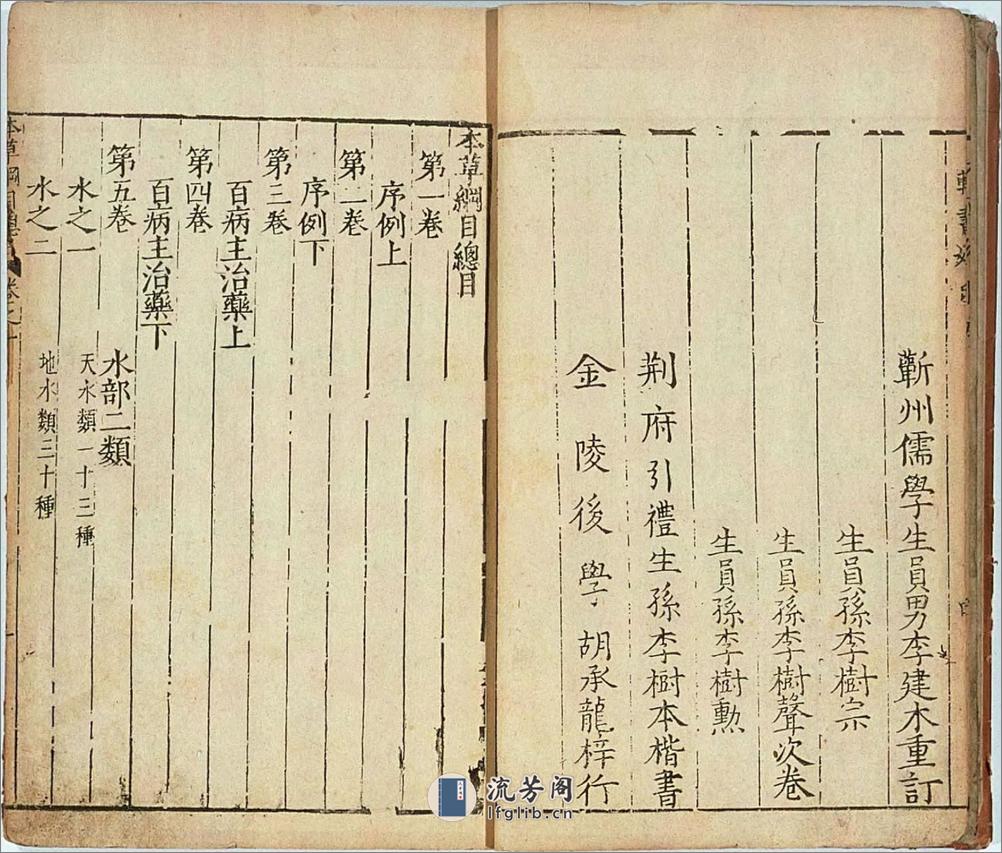 蘄州儒學生員男李建木重訂
生員孫李樹宗
生員孫李樹聲次卷
生員孫李樹勳
荆府引禮生孫李樹本楷書
金陵後學胡承龍梓行
本草綱目總目
第一卷
序例上
第二卷
序例下
第三卷
百病主治藥上
第四卷
百病主治藥下
第五卷 水部二類
水之一 天水類一十三種
水之二 地水類三十種
流芳阁
lfglib.cn